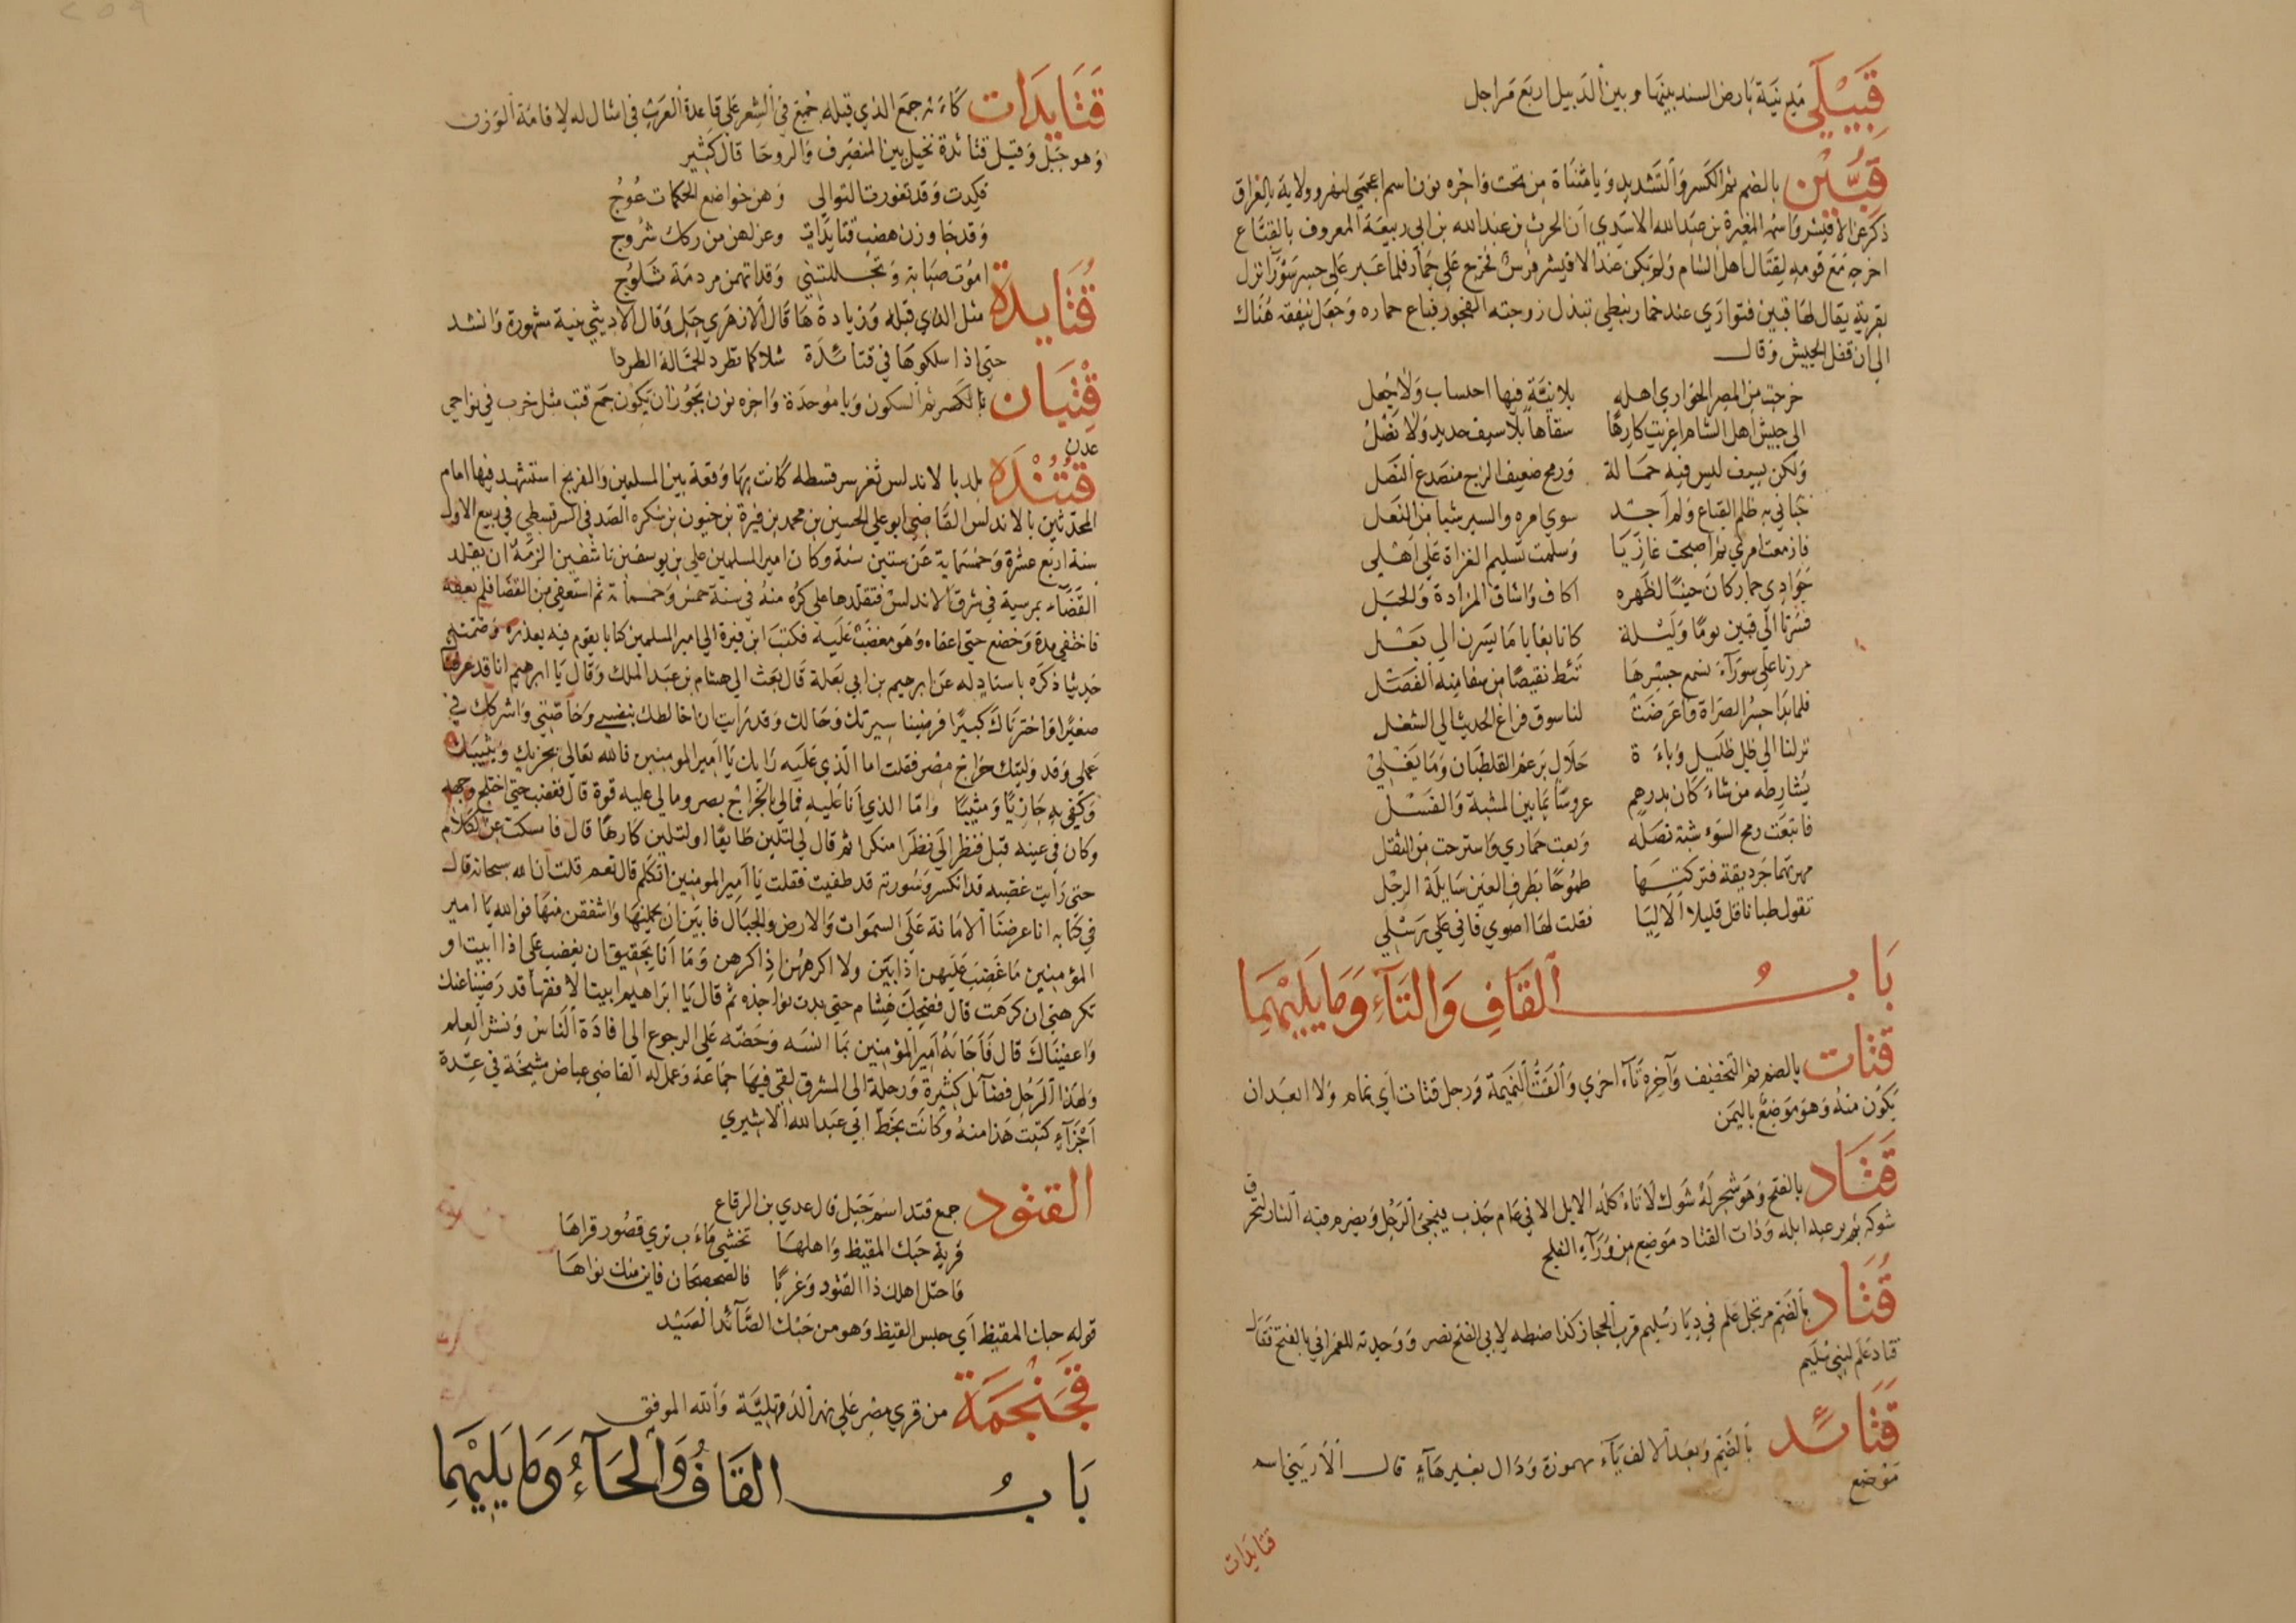 قَبَيْلَي مَدينَة بَارض السند بينهَا وبين الدَيبل اربَع مَراجل
قُبِّيْن بالضم ثم الكَسر وَالتَشديد وَيا مثنَاة من تحت وَاخره نون اسم اعجَمي لنهر وولاية بالعَراق
ذكرَ عن الاقيشر وَاسمه المغيرة بن عبَد الله الاسَدي اَن الحرث بن عبَد الله بن ابي ربيعَة المعروف بالقبَاع
اخرجه مَع قومه لِقتَال اَهل الشام وَلم يكن عند الاقيشر فرسٌ فخرج عَلي حمَار فلما عَبر عَلي جسر سَوُرَا نزل
بقرية يقال لهَا قبين فتوارَي عند خمار نبطي تبذل زوجته الفجور فباع حماره وَجعَل ينفقه هُنَاك
الي اَن قفل الجيش وَقال
خرجت من المصر الحَواري اهله بلا نيَّةٍ فيها احتساب وَلا جُعل
الي جيش اهل الشام اغزيت كارِهًا سفاهًا بلا سيف حديد وَلا نَصْلُ
وَلكن بسيف ليس فيه حمَالة وَرمح ضعيف الزج متصَدع النَصَل
حَبَاني به ظلم القبَاع وَلم اَجد سوي امره والسير شيا من الفعَل
فازمعت امري ثم اصبحت غازيَا وَسلمت تسليم الغزاة عَلي اَهْلي
جَوَادي حمار كان حينًا لظَهره اكاف وَاشناق المزادة وَالحبَل
فسرنا الي قبين يومًا وَليْلة كانا بغايا مَا يسَرن الي بَعْل
مررنا علي سوَرَآءَ نسمع جسْرهَا تَئط نقيضًا من سفاينه الفَضْل
فلما بَدا جسرُ الصَراة وَاعرَضَتْ لنا سوق فراغ الحديث الي الشغل
نزلنا الي ظل ظَليل وَباءَة حَلَال برَغم القلطَبان وَمَا يَغْلِيْ
يُشَارطه من شاءَ كان بدرهمٍ عروسًا بمَا بين المشبة وَالفسْل
فاتبعَت رمح السَوء شبة نَصَله وَبعت حمَاري وَاسترحت من الثقل
تقول طبانا قل قليلا اَلَا لِيَا فقلت لهَا اصوي فاني عَلي رسْلي
بَابُ القَافِ وَالتَآءِ وَمَا يَليْهِمَا
قتَات بالضم ثم التَخفيف وَآخره تَآء اخرَي وَالقَتُّ النَميمَة وَرجل قتات اَي نمام وَلا ابعَد ان
يكوُن منهُ وَهوَ مَوضِعٌ باليمَن
قَتَاد بالفتح وَهوَ شجر لَهُ شَوك لا تاءكله الابل الا في عَام جَذب فيجَئ الرَجُل وَيضرم فيه النار لتحرق
شوكه ثم يرعيه ابله وَذات القتَاد مَوضِع من وَرَآءِ الفلج
قُتَاد بالضَم مرتجل عَلم في ديَار سُليم قرب الحجاز كذا ضبطه لابي الفتح نصر وَوَجدته للعمراني بالفتح فقال
قتاد عَلم لبني سُليم
قَتَائد بالضَّم وَبعَد الالف يَآء مهموزة وَدَال بغير هَآءٍ قال الاَديبي اسم
مَوضع
قتايدات
قَتَايدَات كَاءنه جمَع الذي قبله جُمِعَ في الشِعر عَلي قاعِدة العَرَب في امثال له لِاقامَة الوَزن
وَهو جَبَل وَقيل قتائدة نخيل بين المنصَرف وَالروحَا قال كثَير
فكِدت وَقد تغورت التوالي وَهن خواضع الحَكمات عُوجُ
وَقد جَاوزن هضب قتَايدَاتٍ وعن لهن من ركك شرُوج
اموُت صبَابة وَتجللتني وَقد اتهمن مردمَة ثَلوُج
قُتَايدَة مثل الذي قبله وَزيادة هَا قَال الازهَري جَبَل وَقال الاديبي ثنية مشهورة وَانشد
حتي اذا اسلكوهَا في قتائدَة شلا كما تطرد الجَمَّالة الطردا
قِتْبَان بالكَسر ثم السكون وَبا موَحدَة وَاخره نون يَجُوز اَن يَكوُن جَمعَ قتب مثل خرب في نواحي
عدن
قُتُنْدَه بلد بالاندلس ثغر سرقسطه كَانت بهَا وَقعَة بين المسلمين وَالفرنج استشهد فيها امام
المحدّثين بالاندلس القَاضي ابو علي الحسين بن محمد بن فيرة بن حيون بن سكره الصَدفي السرقسطي في ربيع الاول
سنة اربَع عشرة وَخمسَماية عَن ستين سنة وكان امير المسلمين علي بن يوسف بن تاشفين الزمَهُ ان يقلد
القَضَاء بمرسية في شرق الاندلس فتقلدها علي كُره منهُ في سَنة خمس وَخمسمائة ثم استعفي من القضَا فلم يعفه
فاختفي مدة وَخضع حتي اعفاه وَهوَ مغضَب عَلَيه فكتبَ ابن فيرة الي امير المسلمين كتابا يقوم فيه بعذره وَضمنه
حَديثا ذكرَه باسنادٍ له عَن ابرهيم بن ابي عبلة قَال بَعَث الي هشام بن عبَد الملك وَقَال يَا ابرهيم انا قد عرفناك
صغيرًا وَاختبرنَاك كبيرًا فرضينا سيرتك وَحَالك وَقد رَايت اَن اخالطك بنفسي وَخاصَّتي وَاشركك في
عَملي وَقد وَليتك خرَاج مصْر فقلت اما الّذي عَلَيه رَايك يَا اَمير المومنين فالله تعالي يجزيك وَيثيبَك
وَكفَي به جَازيًا وَمثيبًا وَامَّا الذي اَنا عَليه فمَالي بالخرَاج بصر وما لي عليه قوة قَال فغضب حتي اختلج وَجهه
وكان في عينه قبل فنظر اليَّ نظَرا منكرا ثم قال لي لتلين طايعًا او لتلين كارهًا قال فامسكت عَن الكلام
حتي رَاَيت غضبه قد انكسر وَسَورته قد طفيت فقلت يَا اَمير المومنين اتكلم قال نعم قلت ان الله سبحانه قال
في كتَابه انا عرضنَا الامَانة عَلَي السموَات وَالارض وَالجبَال فابَين ان يحملنهَا وَاشفقن منهَا فوَالله يَا امير
المؤمنين مَا غَضب عَليهن اذ ابَيْن ولا اكرهَهُن اِذ كرهن وَمَا اَنا بحَقيق ان يغضب علي اذا ابيت او
تكرهني ان كرهَت قال فضحِكَ هِشام حتي بدت نواجذه ثم قال يَا ابرَاهيم ابيت الا فقهًا قد رَضينا عنك
وَاعفينَاك قال فَاَجَابَهُ اَمير المؤمنين بمَا انسَه وَحَضّه عَلي الرجوع الي افادَة النَاس وَنشر العِلم
وَلهذا الرَجُل فضآئل كثيرة وَرحلة الي المشرق لقي فيهَا جمَاعَة وَعمل له القاضي عياض مشيخَة في عِدة
اَجْزَآءٍ كتَبت هَذا منهُ وَكَانت بخَطّ ابي عَبَد الله الاشيري
القتُود جمع قتد اسْم جَبَل قال عدي بن الرقاع
قرية حَبك المقيظ وَاهلهَا تخشي مَاءَب تري قصُور قراهَا
وَاحتل اهلك ذا القتُود وَغربًا فالصَحصحَان فاين منك نواهَا
قوله حبك المقيظ اَي حبس القيظ وَهو من حَبْك الصَّائد الصَيد
قَجَنْجَمَة من قري مصْر عَلي نهر الدَقهلِيَّة وَالله الموفق
بَابُ القَافُ وَالحَآءُ وَمَا يَليْهِمَا